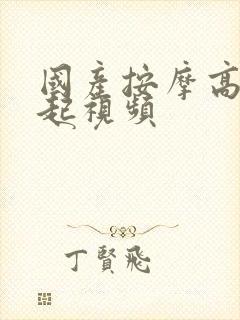 國產按摩高
起視頻
丁賢飛